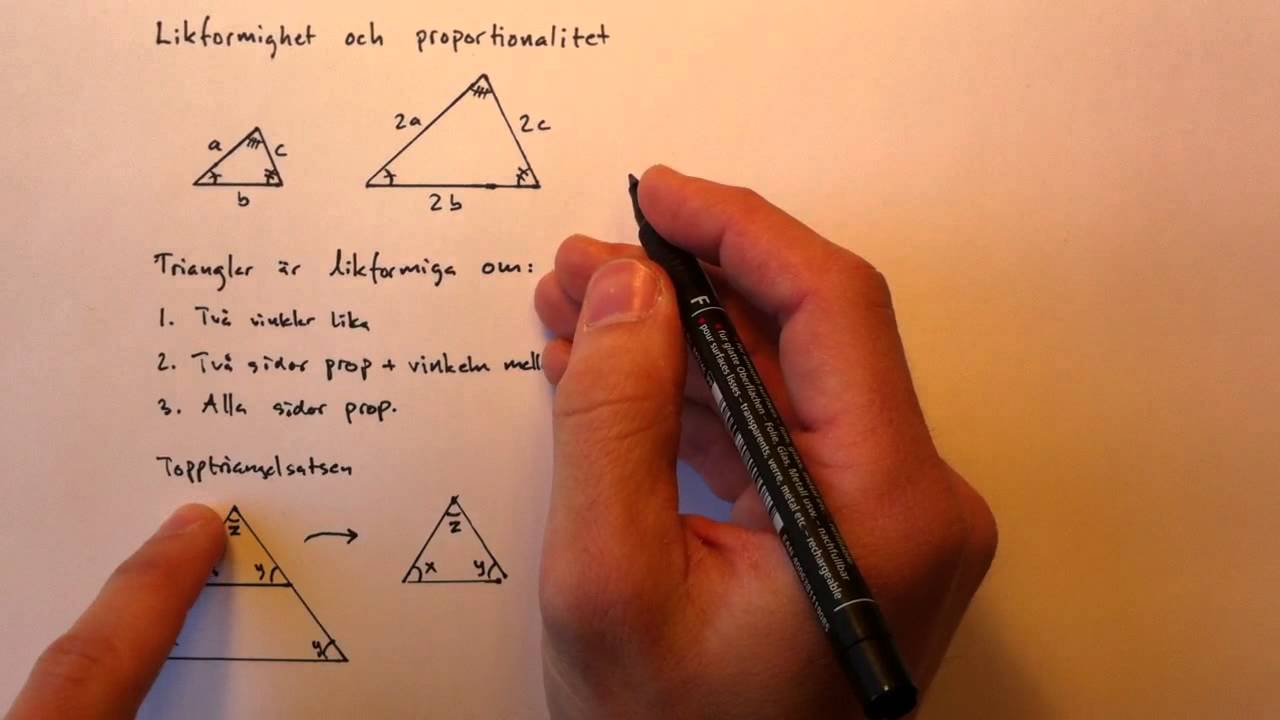 Likformighet och proportionalitet
2a
2c
a
c
b
2b
Trianglar är likformiga om:
1. Två vinklar lika
2. Två sidor prop + vinkeln mell
3. Alla sidor prop.
Topptriangelsatsen
z
z
y
x
y
y
F
für glatte Oberflächen – Folie, Glas, Metall usw. – nachfüllbar
pour surfaces lisses – transparents, verre, métal etc – rechargeable